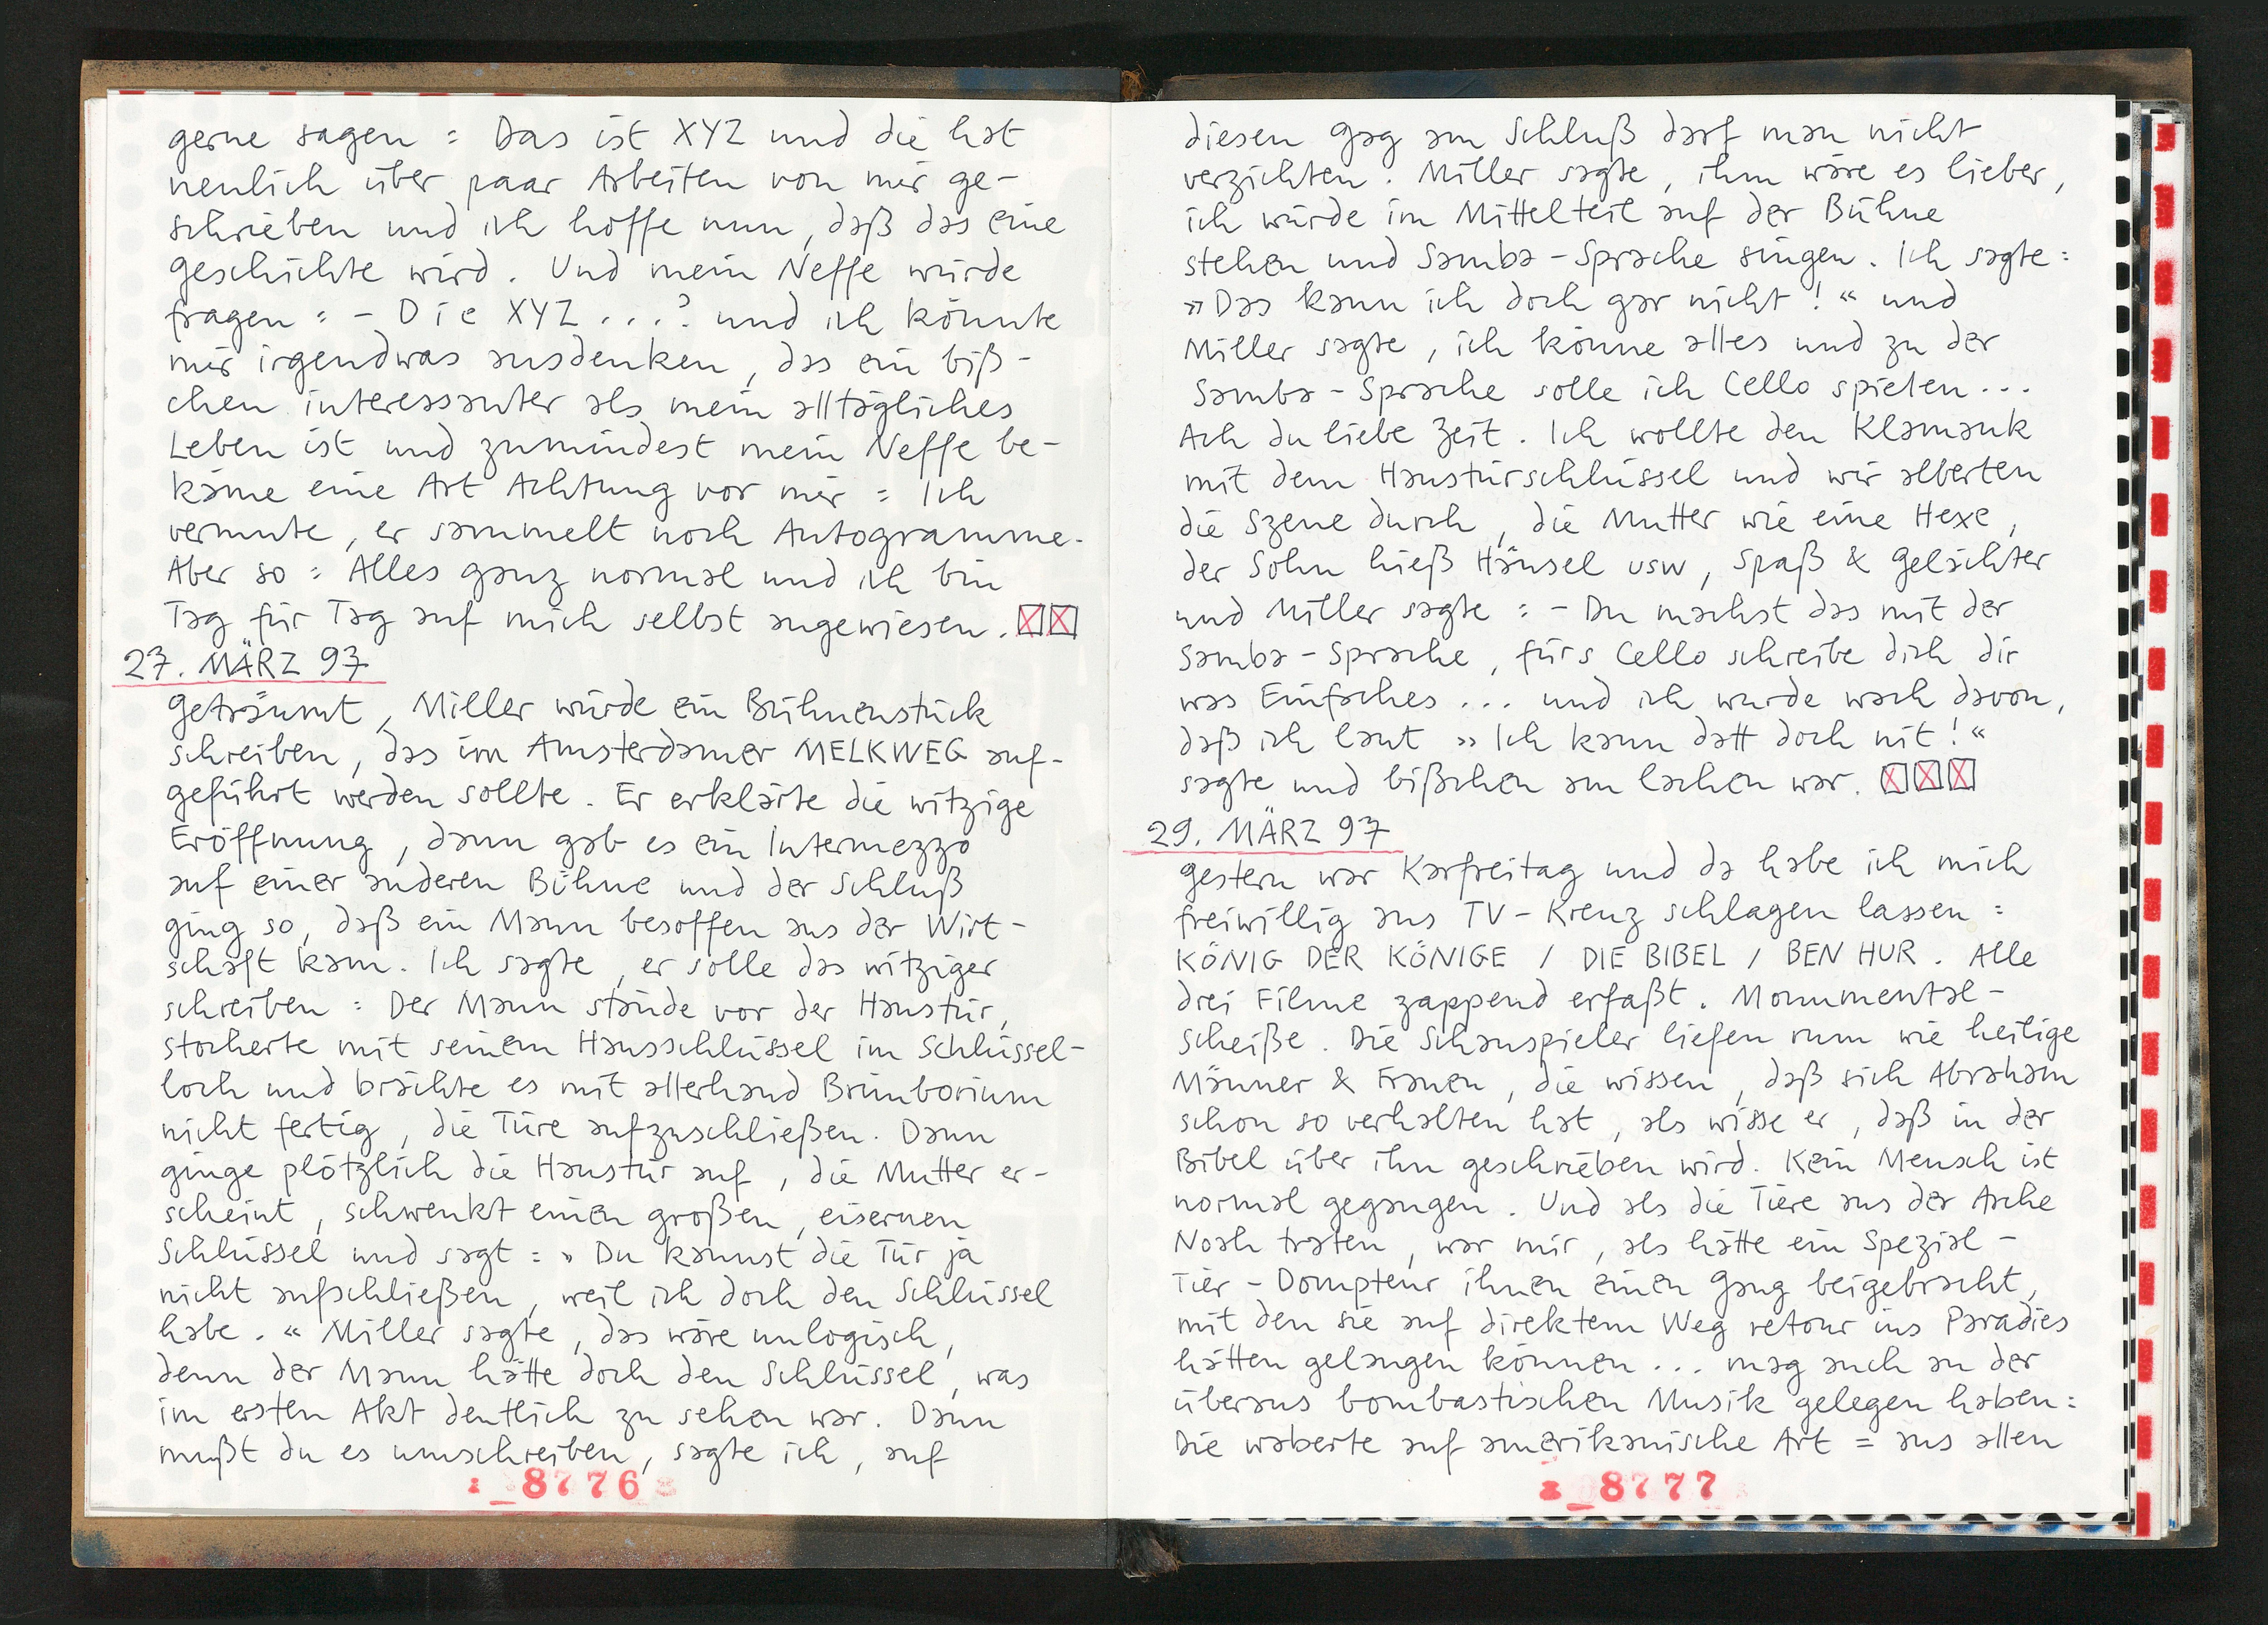 gerne sagen : Das ist XYZ und die hat
neulich über paar Arbeiten von mir ge-
schrieben und ich hoffe nun, daß das eine
Geschichte wird. Und mein Neffe würde
fragen : - Die XYZ ...? und ich könnte
mir irgendwas ausdenken, das ein biß-
chen interessanter als mein alltägliches
Leben ist und zumindest mein Neffe be-
käme eine Art Achtung vor mir : Ich
vermute, er sammelt noch Autogramme.
Aber so : Alles ganz normal und ich bin
Tag für Tag auf mich selbst angewiesen. ☒☒
27. MÄRZ 97
Geträumt, Miller würde ein Bühnenstück
schreiben, das im Amsterdamer MELKWEG auf-
geführt werden sollte. Er erklärte die witzige
Eröffnung, dann gab es ein Intermezzo
auf einer anderen Bühne und der Schluß
ging so, daß ein Mann besoffen aus der Wirt-
schaft kam. Ich sagte, er solle das witziger
schreiben : Der Mann stände vor der Haustür,
stocherte mit seinem Hausschlüssel im Schlüssel-
loch und brächte es mit allerhand Brimborium
nicht fertig, die Türe aufzuschließen. Dann
ginge plötzlich die Haustür auf, die Mutter er-
scheint, schwenkt einen großen, eisernen
Schlüssel und sagt : » Du kannst die Tür ja
nicht aufschließen, weil ich doch den Schlüssel
habe. « Miller sagte, das wäre unlogisch,
denn der Mann hätte doch den Schlüssel, was
im ersten Akt deutlich zu sehen war. Dann
mußt du es umschreiben, sagte ich, auf
8776
diesen Gag am Schluß darf man nicht
verzichten. Miller sagte, ihm wäre es lieber,
ich würde im Mittelteil auf der Bühne
stehen und Samba-Sprache singen. Ich sagte :
» Das kann ich doch gar nicht ! « und
Miller sagte, ich könne alles und zu der
Samba-Sprache solle ich Cello spielen ...
Ach du liebe Zeit. Ich wollte den Klamauk
mit dem Haustürschlüssel und wir alberten
die Szene durch, die Mutter wie eine Hexe,
der Sohn hieß Hänsel usw, Spaß & Gelächter
und Miller sagte : - Du machst das mit der
Samba-Sprache, fürs Cello schreibe dich dir
was Einfaches ... und ich wurde wach davon,
daß ich laut » Ich kann datt doch nit ! «
sagte und bißchen am lachen war. ☒☒☒
29. MÄRZ 97
Gestern war Karfreitag und da habe ich mich
freiwillig ans TV-Kreuz schlagen lassen :
KÖNIG DER KÖNIGE / DIE BIBEL / BEN HUR. Alle
drei Filme zappend erfaßt. Monumental-
scheiße. Die Schauspieler liefen rum wie heilige
Männer & Frauen, die wissen, daß sich Abraham
schon so verhalten hat, als wisse er, daß in der
Bibel über ihn geschrieben wird. Kein Mensch ist
normal gegangen. Und als die Tiere aus der Arche
Noah traten, war mir, als hätte ein Spezial-
Tier-Dompteur ihnen einen Gang beigebracht,
mit den sie auf direktem Weg retour ins Paradies
hätten gelangen können ... mag auch an der
überaus bombastischen Musik gelegen haben :
Die waberte auf amerikanische Art = aus allen
8777